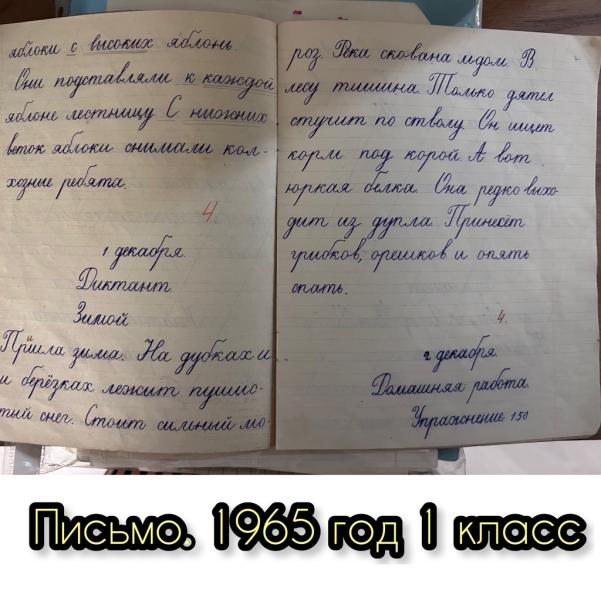 яблоки с высоких яблонь.
Они подставляли к каждой
яблоне лестницу. С нижних
веток яблоки снимали кол-
хозные ребята.
4
1 декабря.
Диктант.
Зимой
Пришла зима. На дубках и
и берёзках лежит пушис-
тый снег. Стоит сильный мо-
роз. Река скована льдом. В
лесу тишина. Только дятел
стучит по стволу. Он ищет
корм под корой. А вот
юркая белка. Она редко выхо-
дит из дупла. Принесёт
грибков, орешков и опять
спать.
4.
2 декабря.
Домашняя работа.
Упражнение 150
Письмо. 1965 год 1 класс